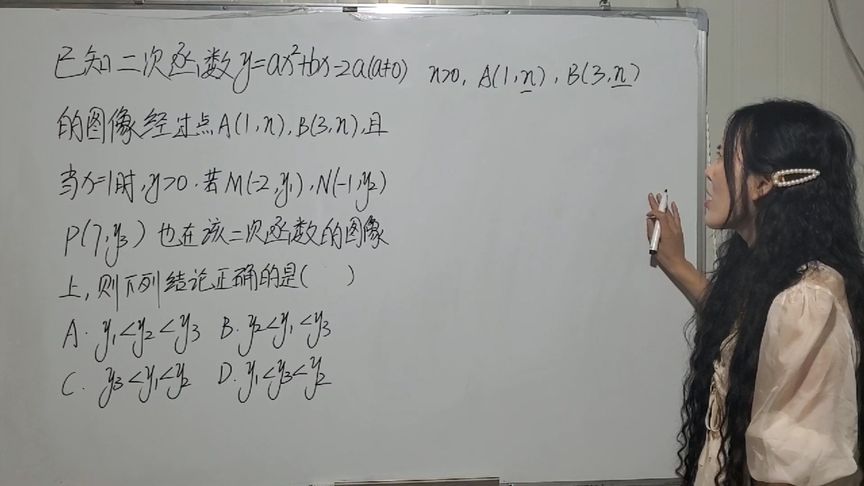 已知二次函数y=ax²+bx-2a(a≠0) n>0, A(1,n), B(3,n)
的图像经过点A(1,n),B(3,n),且
当x=1时,y>0.若M(-2,y₁),N(-1,y₂)
P(7,y₃)也在该二次函数的图像
上,则下列结论正确的是( )
A. y₁<y₂<y₃ B. y₂<y₁<y₃
C. y₃<y₁<y₂ D. y₁<y₃<y₂